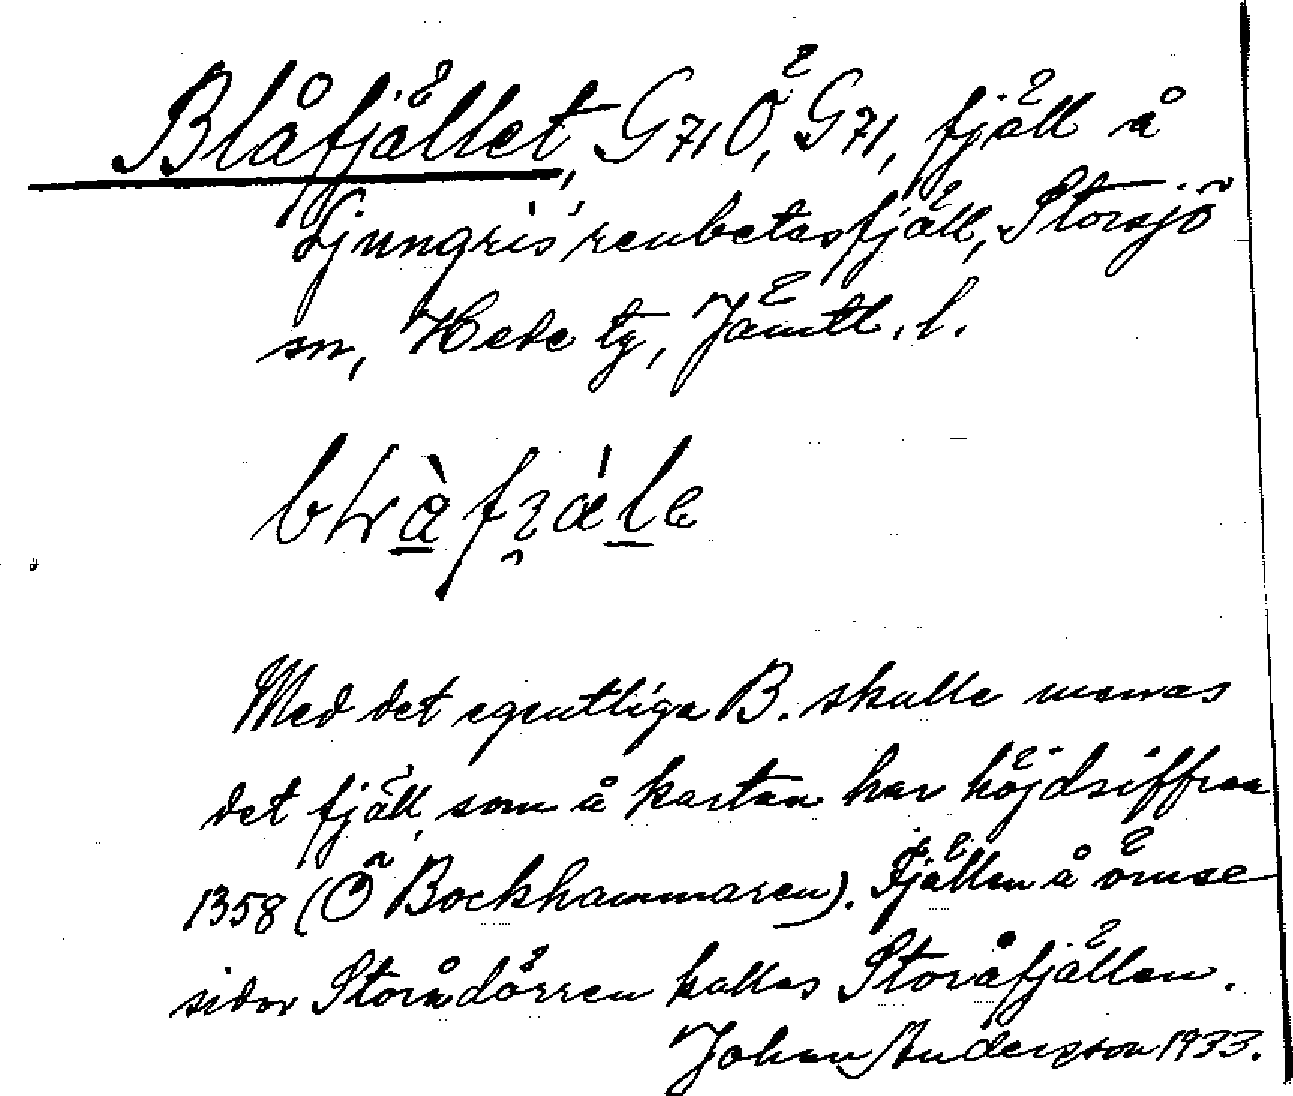 Blåfjället, G71Ö, G71, fjäll å
Ljungris' renbetesfjäll, Storsjö
sn, Hede tg, Jämtl. l.
Med det egentliga B. skulle menas
det fjäll, som å kartan har höjdsiffran
1358 (Ö Bockhammaren). Fjällen å ömse
sidor Storådörren kallas Storåfjällen.
Johan Anderson 1933.